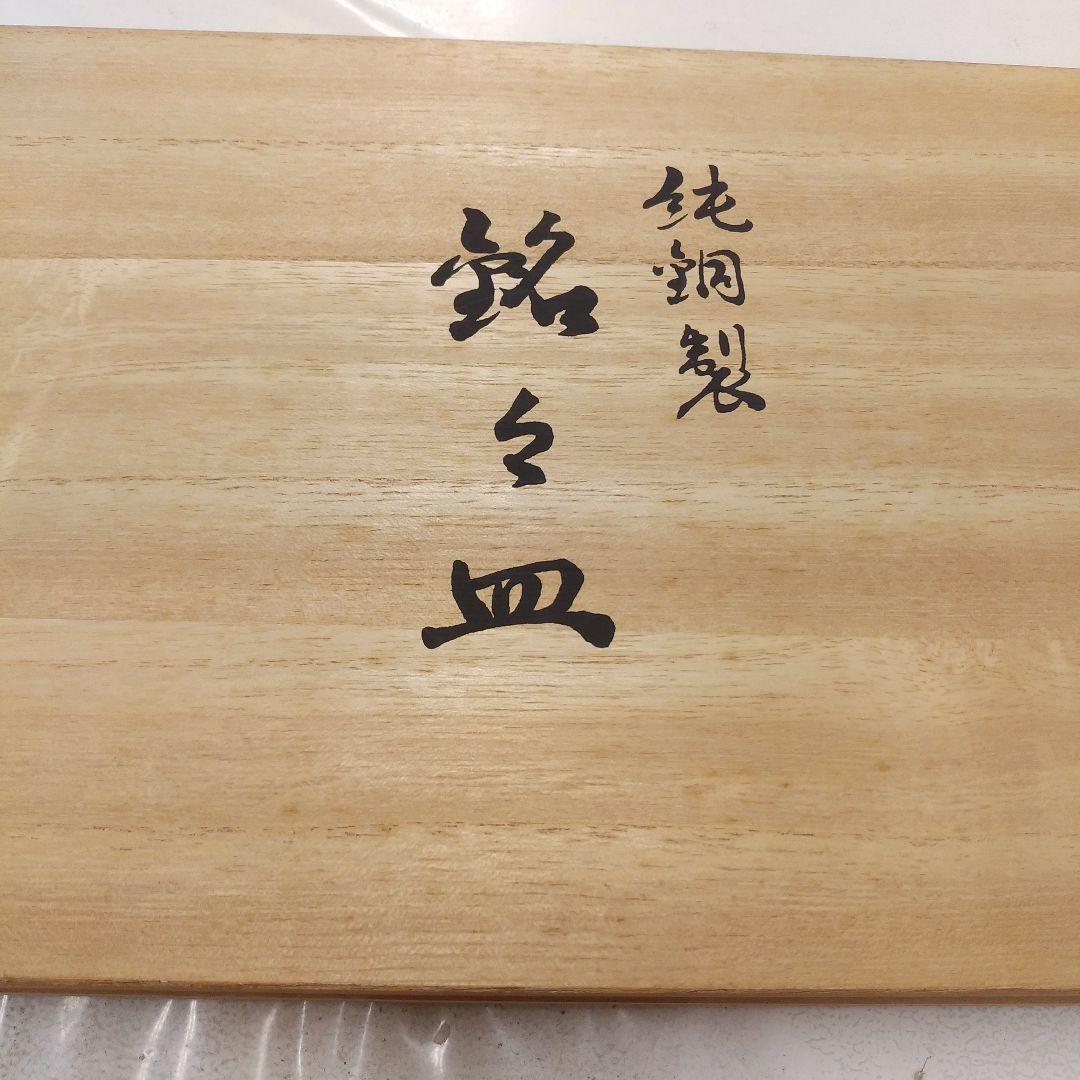 純銅製
銘々皿